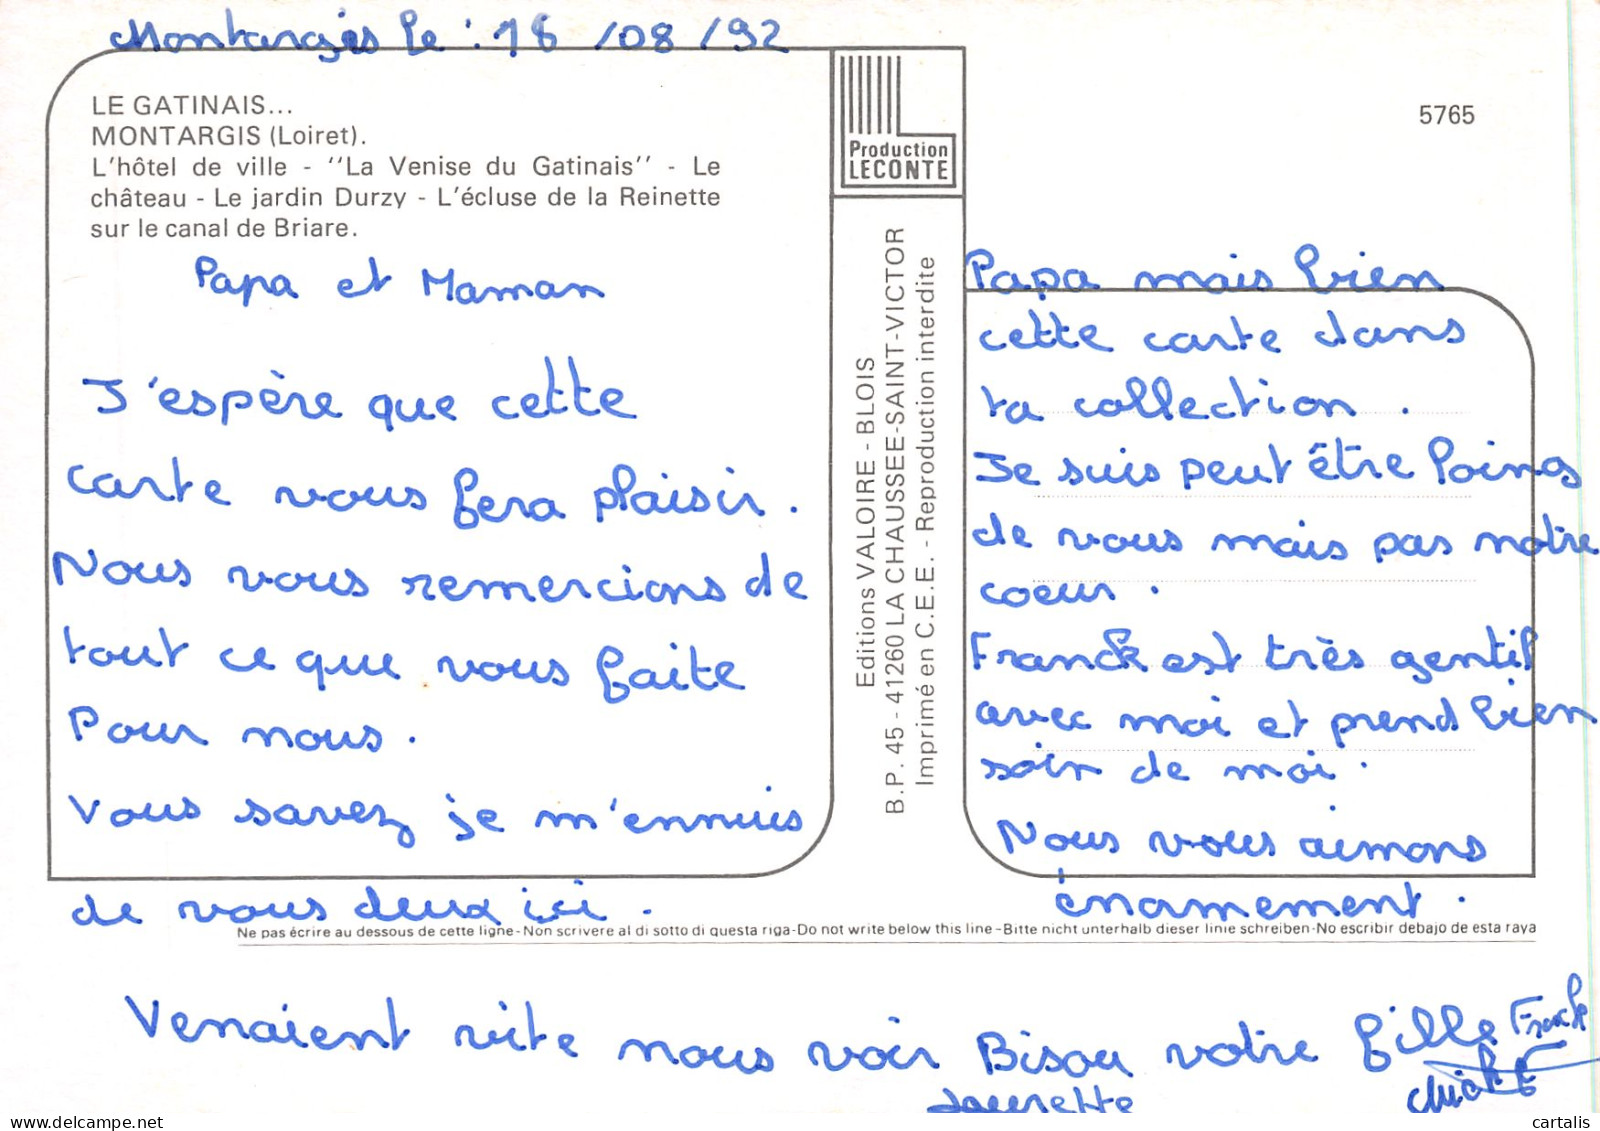 Montargis le : 18 /08 /92
LE GATINAIS...
MONTARGIS (Loiret).
L'hôtel de ville - ''La Venise du Gatinais'' - Le
château - Le jardin Durzy - L'écluse de la Reinette
sur le canal de Briare.
Papa et Maman
J'espère que cette
carte vous fera plaisir.
Nous vous remercions de
tout ce que vous faite
Pour nous.
Vous savez je m'ennuis
de vous deux ici.
Production
LECONTE
Editions VALOIRE - BLOIS
B.P. 45 - 41260 LA CHAUSSEE-SAINT-VICTOR
Imprimé en C.E.E. - Reproduction interdite
5765
Papa mais bien
cette carte dans
ta collection.
Je suis peut être loing
de vous mais pas notre
coeur.
Franck est très gentil
avec moi et prend bien
soin de moi.
Nous vous aimons
énormement.
Ne pas écrire au dessous de cette ligne-Non scrivere al di sotto di questa riga-Do not write below this line-Bitte nicht unterhalb dieser linie schreiben-No escribir debajo de esta raya
Venaient vite nous voir Bisou votre fille Franck
Laurette
cartalis
www.delcampe.net